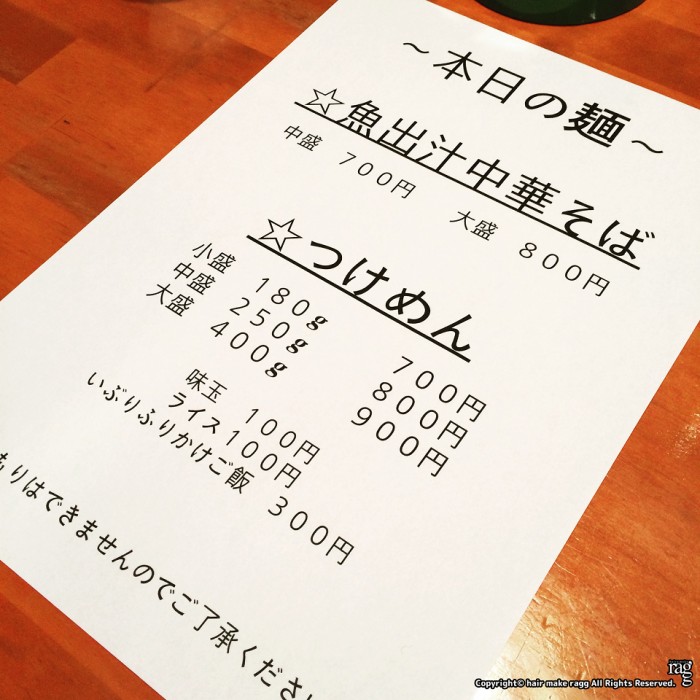 ～本日の麺～
☆魚出汁中華そば
中盛 ７００円 大盛 ８００円
☆つけめん
小盛 １８０g ７００円
中盛 ２５０g ８００円
大盛 ４００g ９００円
味玉 １００円
ライス１００円
いぶりふりかけご飯 ３００円
もりはできませんのでご了承ください
rag
Copyright© hair make ragg All Rights Reserved.